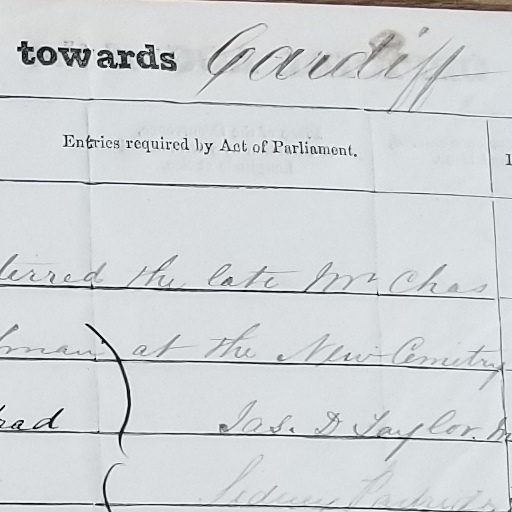 towards Cardiff
Entries required by Act of Parliament.
the late Mr Chas
at the New Cemetry
Jas. D Taylor.